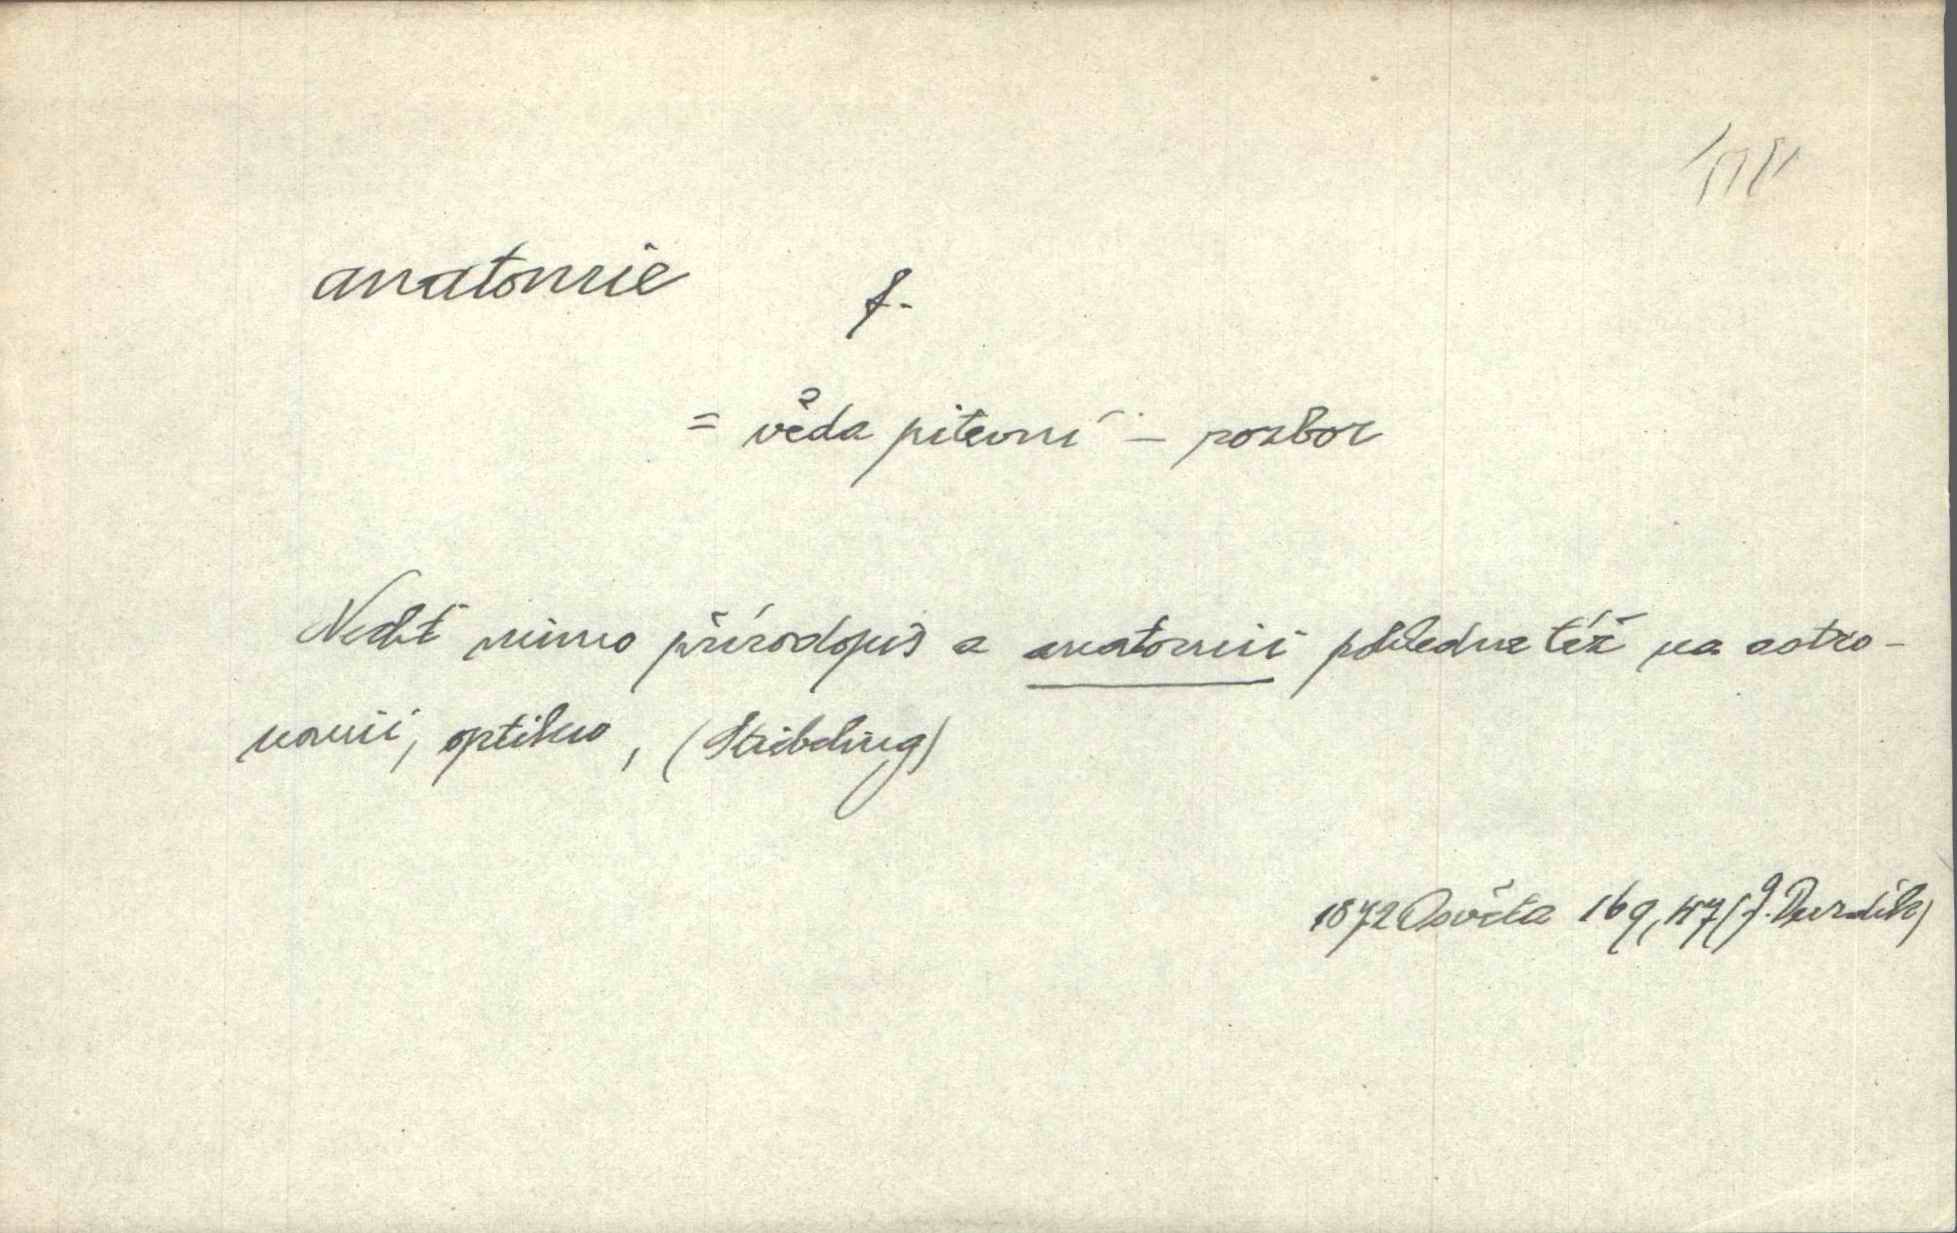 anatomie f.
= věda pitevní – rozbor
Nechť mimo přírodopis a anatomii pohledne též na astro-
nomii, optiku, (Schelling)
1872 Osvěta 169, (J. Durdík)